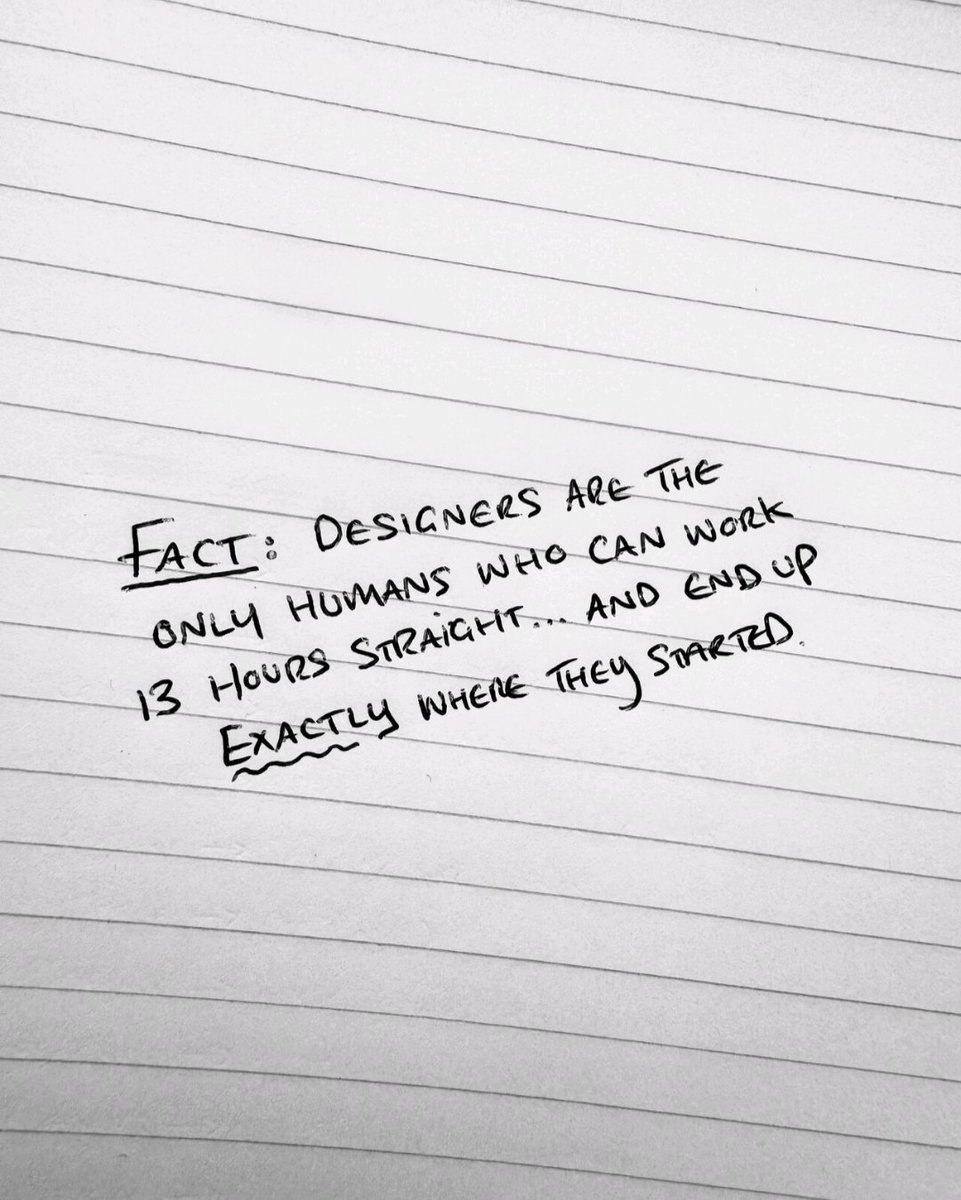 FACT: DESIGNERS ARE THE
ONLY HUMANS WHO CAN WORK
13 HOURS STRAIGHT... AND END UP
EXACTLY WHERE THEY STARTED.